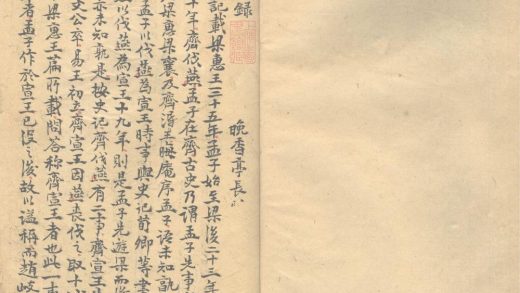 錄
晚香亭長
記載梁惠王三十五年孟子始至梁後二十三年
十年齊伐燕孟子在齊古史乃謂孟子先事
梁惠梁襄及齊湣王晦庵序孟子語未知孰
孟子以伐燕為宣王時事與史記荀卿等書
以伐燕為宣王十九年則是孟子先遊梁而後
亦未知孰是按史記齊伐燕有二事齊宣王
公卒易王初立齊宣王因燕喪伐之取十
梁惠王篇所載問答稱齊宣王者也此一事
者孟子作於宣王已沒之後故以謚稱而趙岐